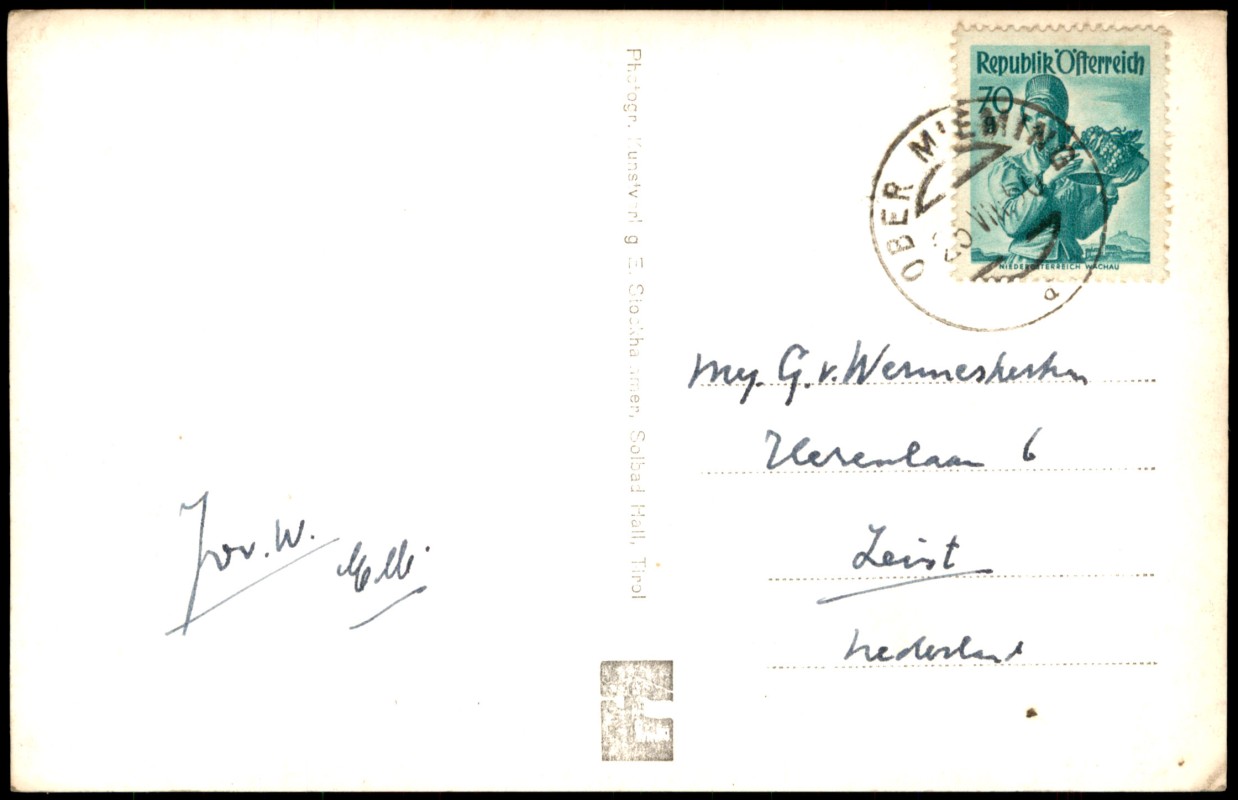 Republik Österreich
70
g
NIEDERÖSTERREICH WACHAU
OBER MIEMING
a
Photogr. Kunstverlag E. Stockhammer, Solbad Hall, Tirol
Mej. G. v. Wermeskerken
Herenlaan 6
Zeist
Nederland
v. W.
Elli